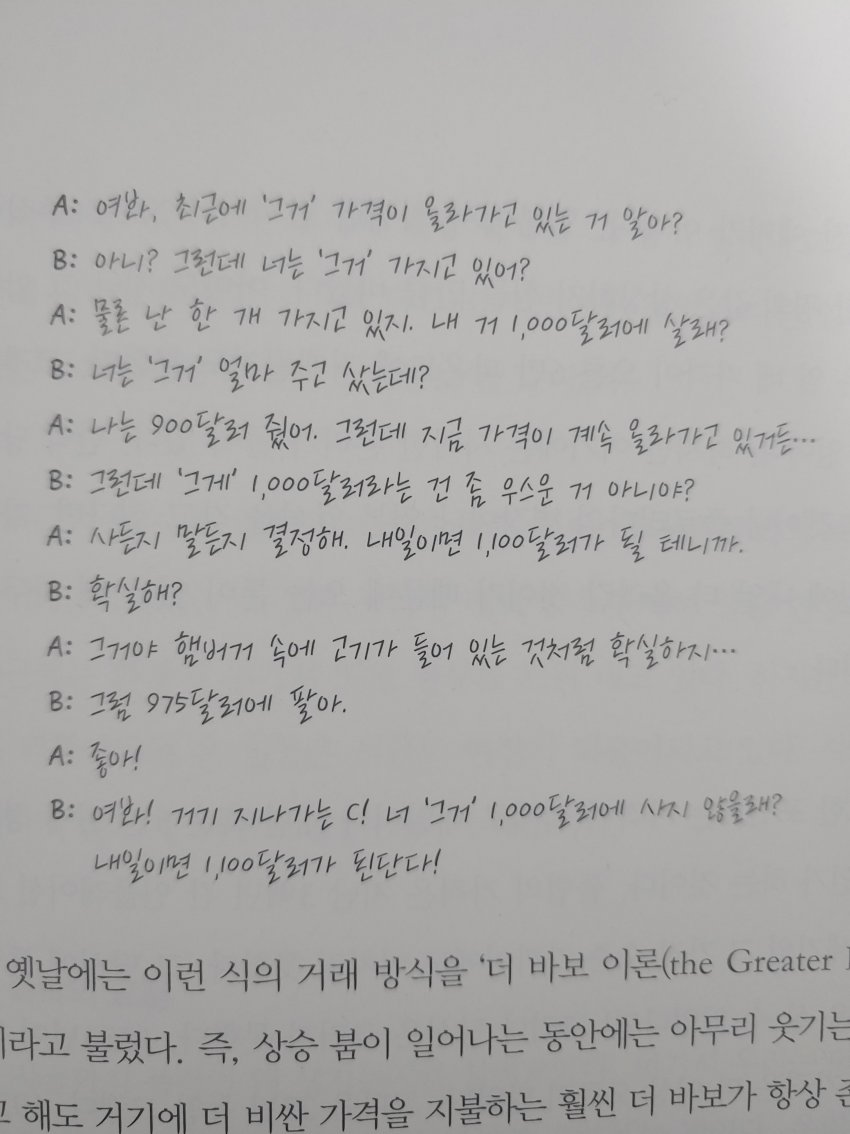 A: 여봐, 최근에 '그거' 가격이 올라가고 있는 거 알아?
B: 아니? 그런데 너는 '그거' 가지고 있어?
A: 물론 난 한 개 가지고 있지. 내 거 1,000달러에 살래?
B: 너는 '그거' 얼마 주고 샀는데?
A: 나는 900달러 줬어. 그런데 지금 가격이 계속 올라가고 있거든…
B: 그런데 '그게' 1,000달러라는 건 좀 우스운 거 아니야?
A: 사든지 말든지 결정해. 내일이면 1,100달러가 될 테니까.
B: 확실해?
A: 그거야 햄버거 속에 고기가 들어 있는 것처럼 확실하지…
B: 그럼 975달러에 팔아.
A: 좋아!
B: 여봐! 거기 지나가는 C! 너 '그거' 1,000달러에 사지 않을래?
내일이면 1,100달러가 된단다!
옛날에는 이런 식의 거래 방식을 '더 바보 이론(the Greater
라고 불렀다. 즉, 상승 붐이 일어나는 동안에는 아무리 웃기는
해도 거기에 더 비싼 가격을 지불하는 훨씬 더 바보가 항상